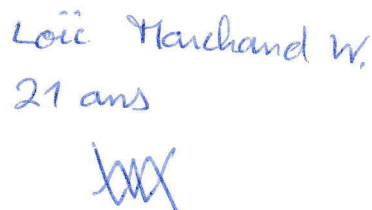 Loïc Marchand W.
21 ans